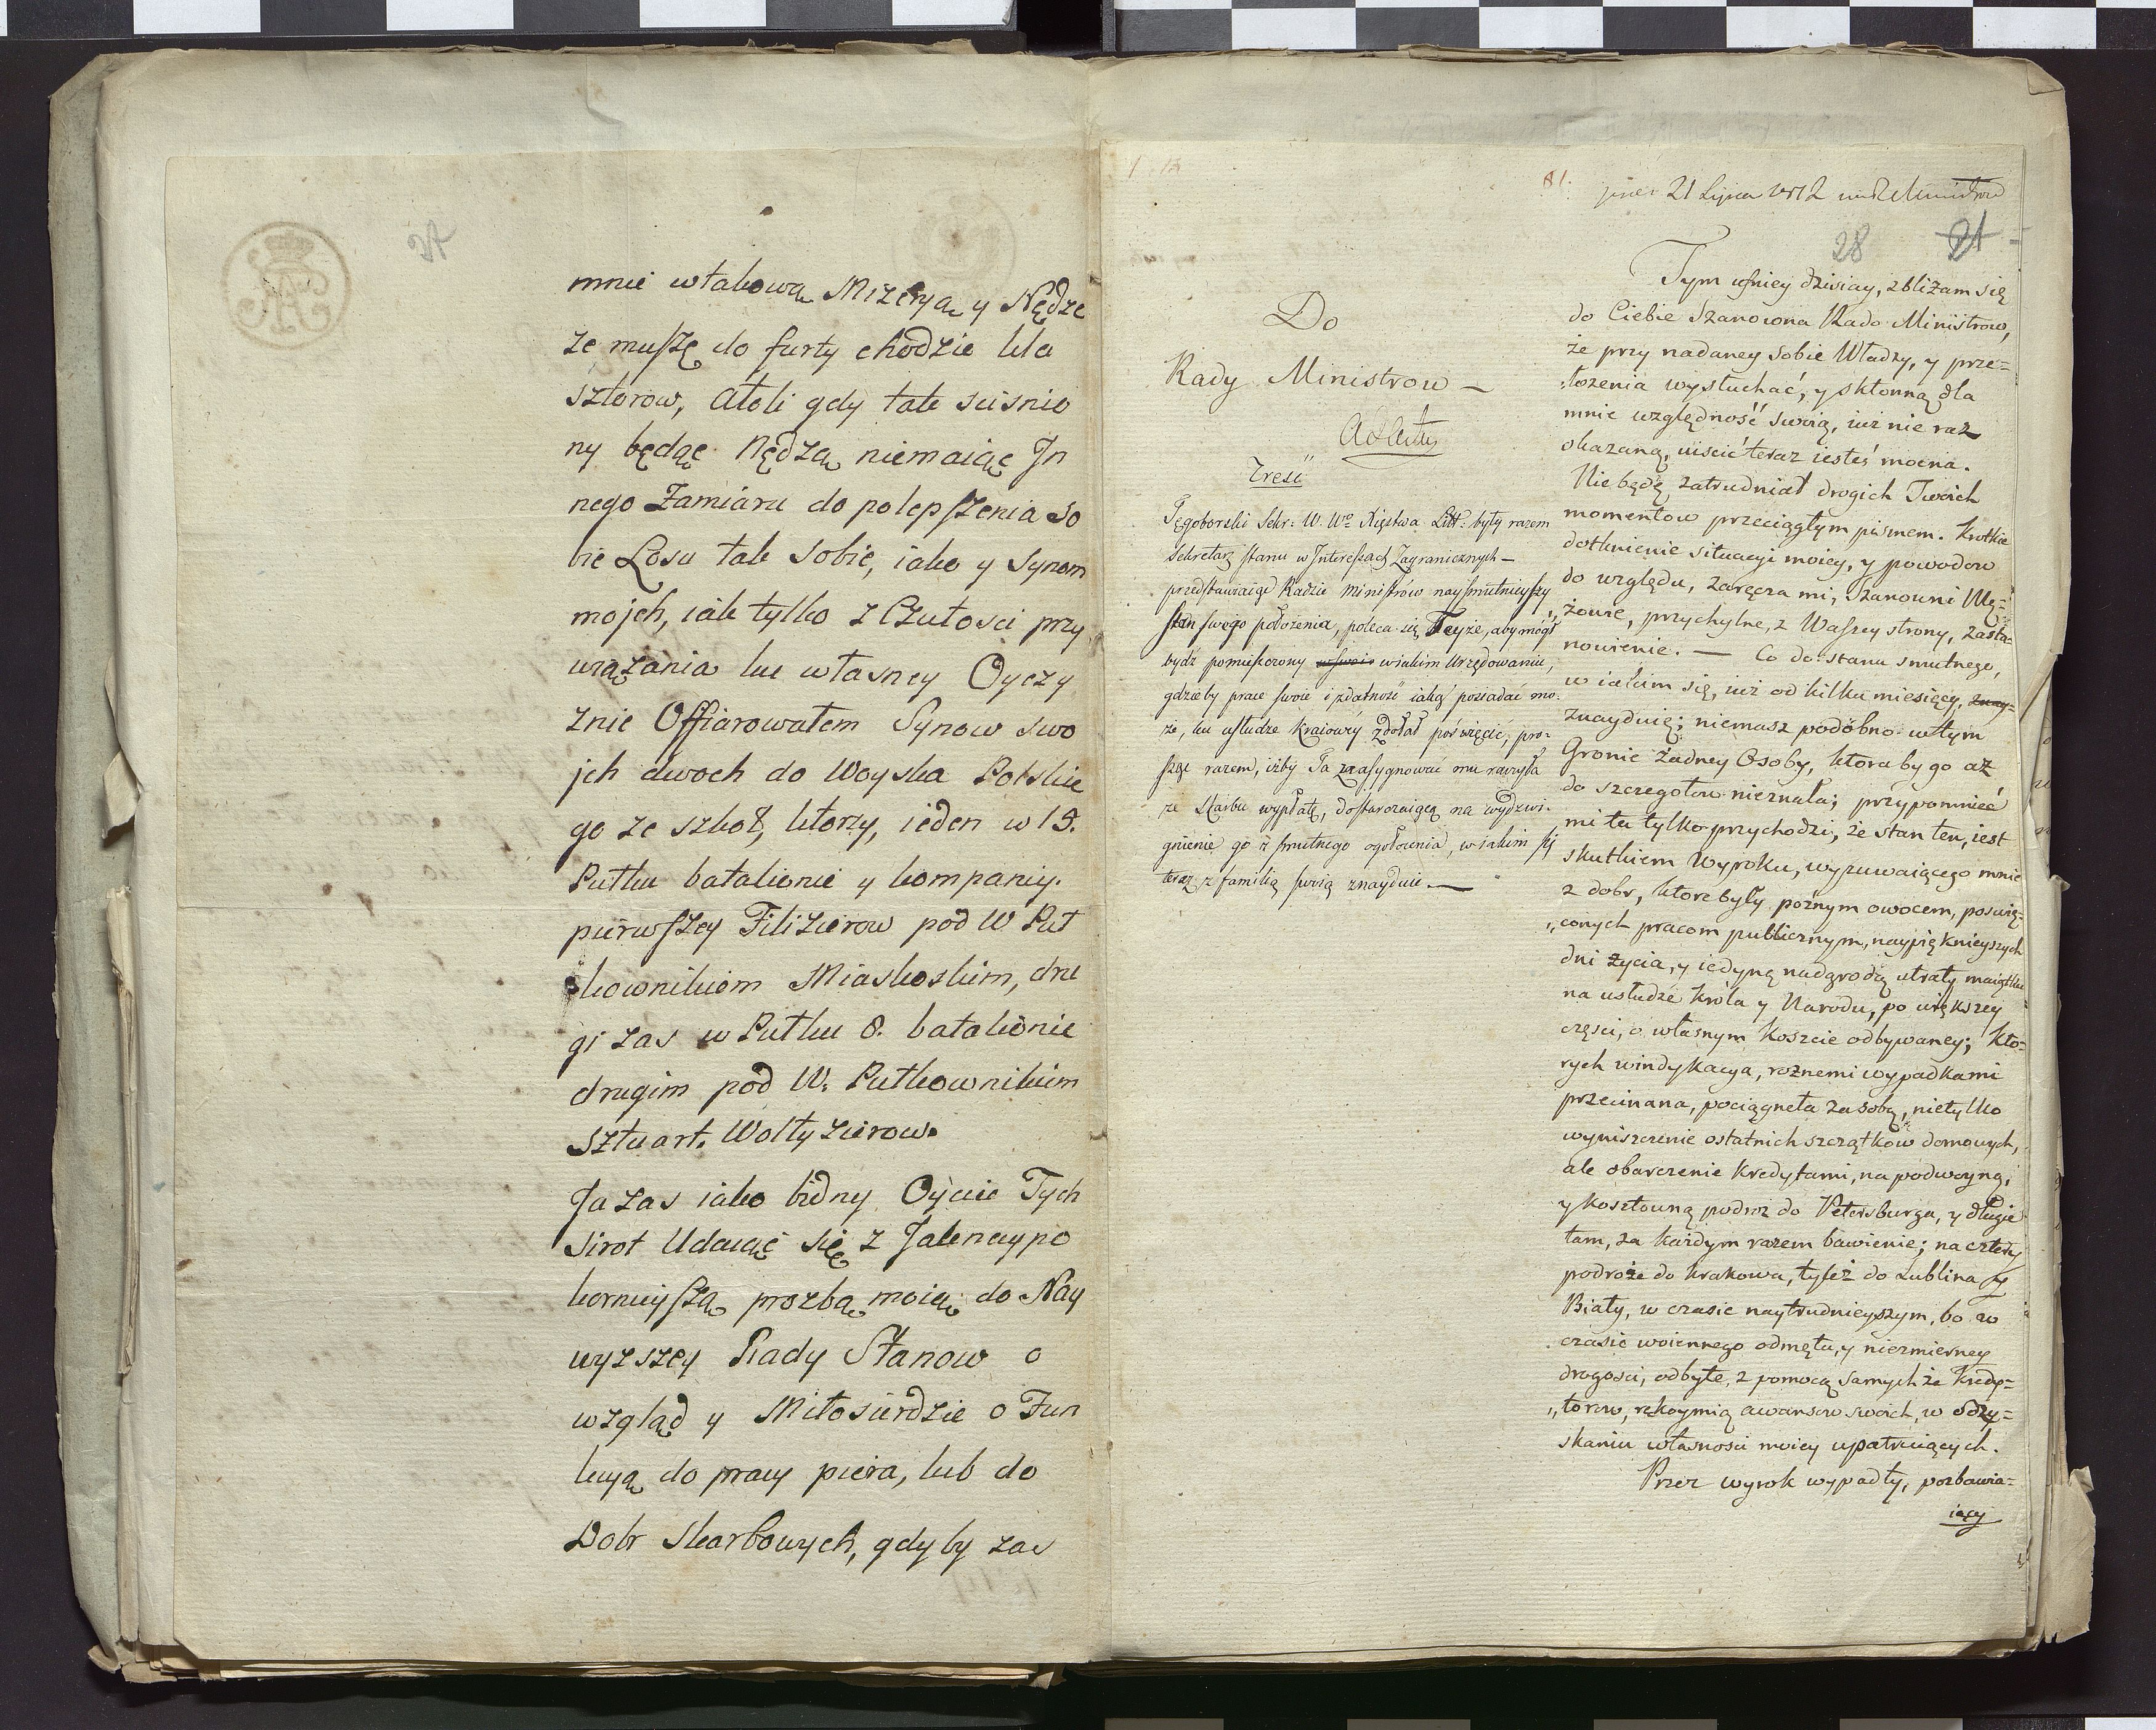 mnie wtakową Mizeryą y Nędze
ze muszę do furty chodzic Kla
sztorow, Atoli gdy tak scisnio
ny będąc Nędzą niemaiąc In
nego Zamiaru do polepszenia So
bie Losu tak Sobie, iako y Synom
mojch, iak tylko z Czułosci przy
wiązania ku własney Oyczy
znie Offiarowałem Synow swo
jch dwoch do Woyska Polskie
go ze szkoł, ktorzy, ieden w 15.
Pułku batalionie y kompaniy.
pierwszey Filizierow pod W Puł
kownikiem Miaskoskim, dru
gi zas w Pułku 8. batalionie
drugim pod W. Pułkownikiem
Sztuart. Woltyzierow.
Ja zas iako bidny Oyciec Tych
Sirot Udaiąc się z Jaknaypo
kornieyszą prozbą moią do Nay
wyzszey Rady Stanow o
wzgląd y Miłosierdzie o Fun
kcyą do pracy piora, lub do
Dobr Skarbowych, gdyby zas
81.
21 Lipca 1812
28 21
Do
Rady Ministrow —
Treść
Tęgoborski Sekr: W. Wo Xięstwa Litt: były razem
Sekretarz stanu w Interessach Zagranicznych —
przedstawiaiąc Radzie Ministrów naysmutnieyszy
stan swego położenia, poleca się Teyże, aby mógł
bydź pomieszczony w iakim Urzędowaniu,
gdzieby prace swoie i zdatność iaką posiadać mo-
że, ku usłudze kraiowéy zdołał poświęcić, pro-
sząc razem, iżby Ta zaasygnować mu raczyła
ze skarbu wypłatę, dostarczaiącą na wydzwi-
gnienie go z smutnego ogołocenia, w iakim się
teraz z familią swoią znayduie. —
Tym ufniey dzisiay, zbliżam się
do Ciebie Szanowna Rado Ministrow,
że przy nadaney sobie Władzy, y prze=
łożenia wysłuchać, y skłonną dla
mnie względność swoią, iuż nie raz
okazaną, uiścić teraz iesteś mocna.
Nie będę zatrudniał drogich Twoich
momentow przeciągłym pismem. Krotkie
dotknienie situacyi moiey, y powodow
do względu, zaręcza mi, Szanowni Mę=
„żowie, przychylne, z Waszey strony, zasta=
nowienie. — Co do stanu smutnego,
w iakim się, iuż od kilku miesięcy, znay=
znayduię; niemasz podobno w tym
Gronie żadney Osoby, ktora by go aż
do szczegołow nieznała; przypomnieć
mi tu tylko przychodzi, że stan ten, iest
skutkiem Wyroku, wyzuwaiącego mnie
z dobr, ktore były poźnym owocem, poswię=
„conych pracom publicznym, naypięknieyszych
dni życia, y iedyną nadgrodą utraty maiątku
na usłudze Króla y Narodu, po większey
części, o własnym koszcie odbywaney; kto=
rych windykacya, roznemi wypadkami
przecinana, pociągneła za sobą, nietylko
wyniszczenie ostatnich szczątkow domowych,
ale obarczenie kredytami, na podwoyną,
y kosztowną podroż do Petersburga, y długie
tam, za każdym razem bawienie; na cztery
podroże do Krakowa, tyleż do Lublina y
Biały, w czasie naytrudnieyszym, bo w
czasie woiennego odmętu, y niezmierney
drogosci, odbyte, z pomocą samych że Kredy=
„torow, rękoymią awansow swoich, w odzy=
skaniu własnosci moiey upatruiących.
Przez wyrok wypadły, pozbawia=
iący